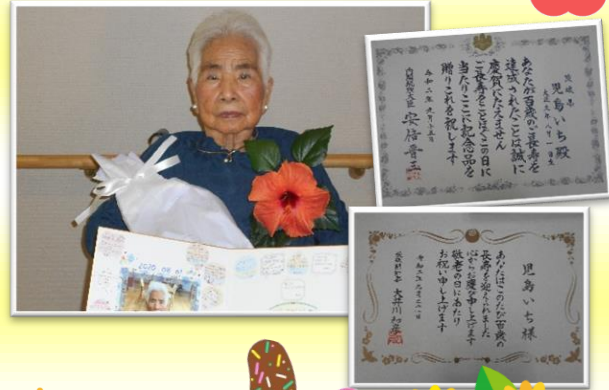 茨城県
児島いち殿
大正九年八月一日生
あなたが百歳のご長寿を
達成されたことは誠に
慶賀にたえません
ご長寿をことほぐこの日に
当たりここに記念品を
贈りこれを祝します
令和二年九月十五日
内閣総理大臣 安倍晋三
児島いち様
あなたはこのたび百歳の
長寿を迎えられました
心からお慶び申し上げます
敬老の日にあたり
お祝い申し上げます
茨城県知事 大井川和彦